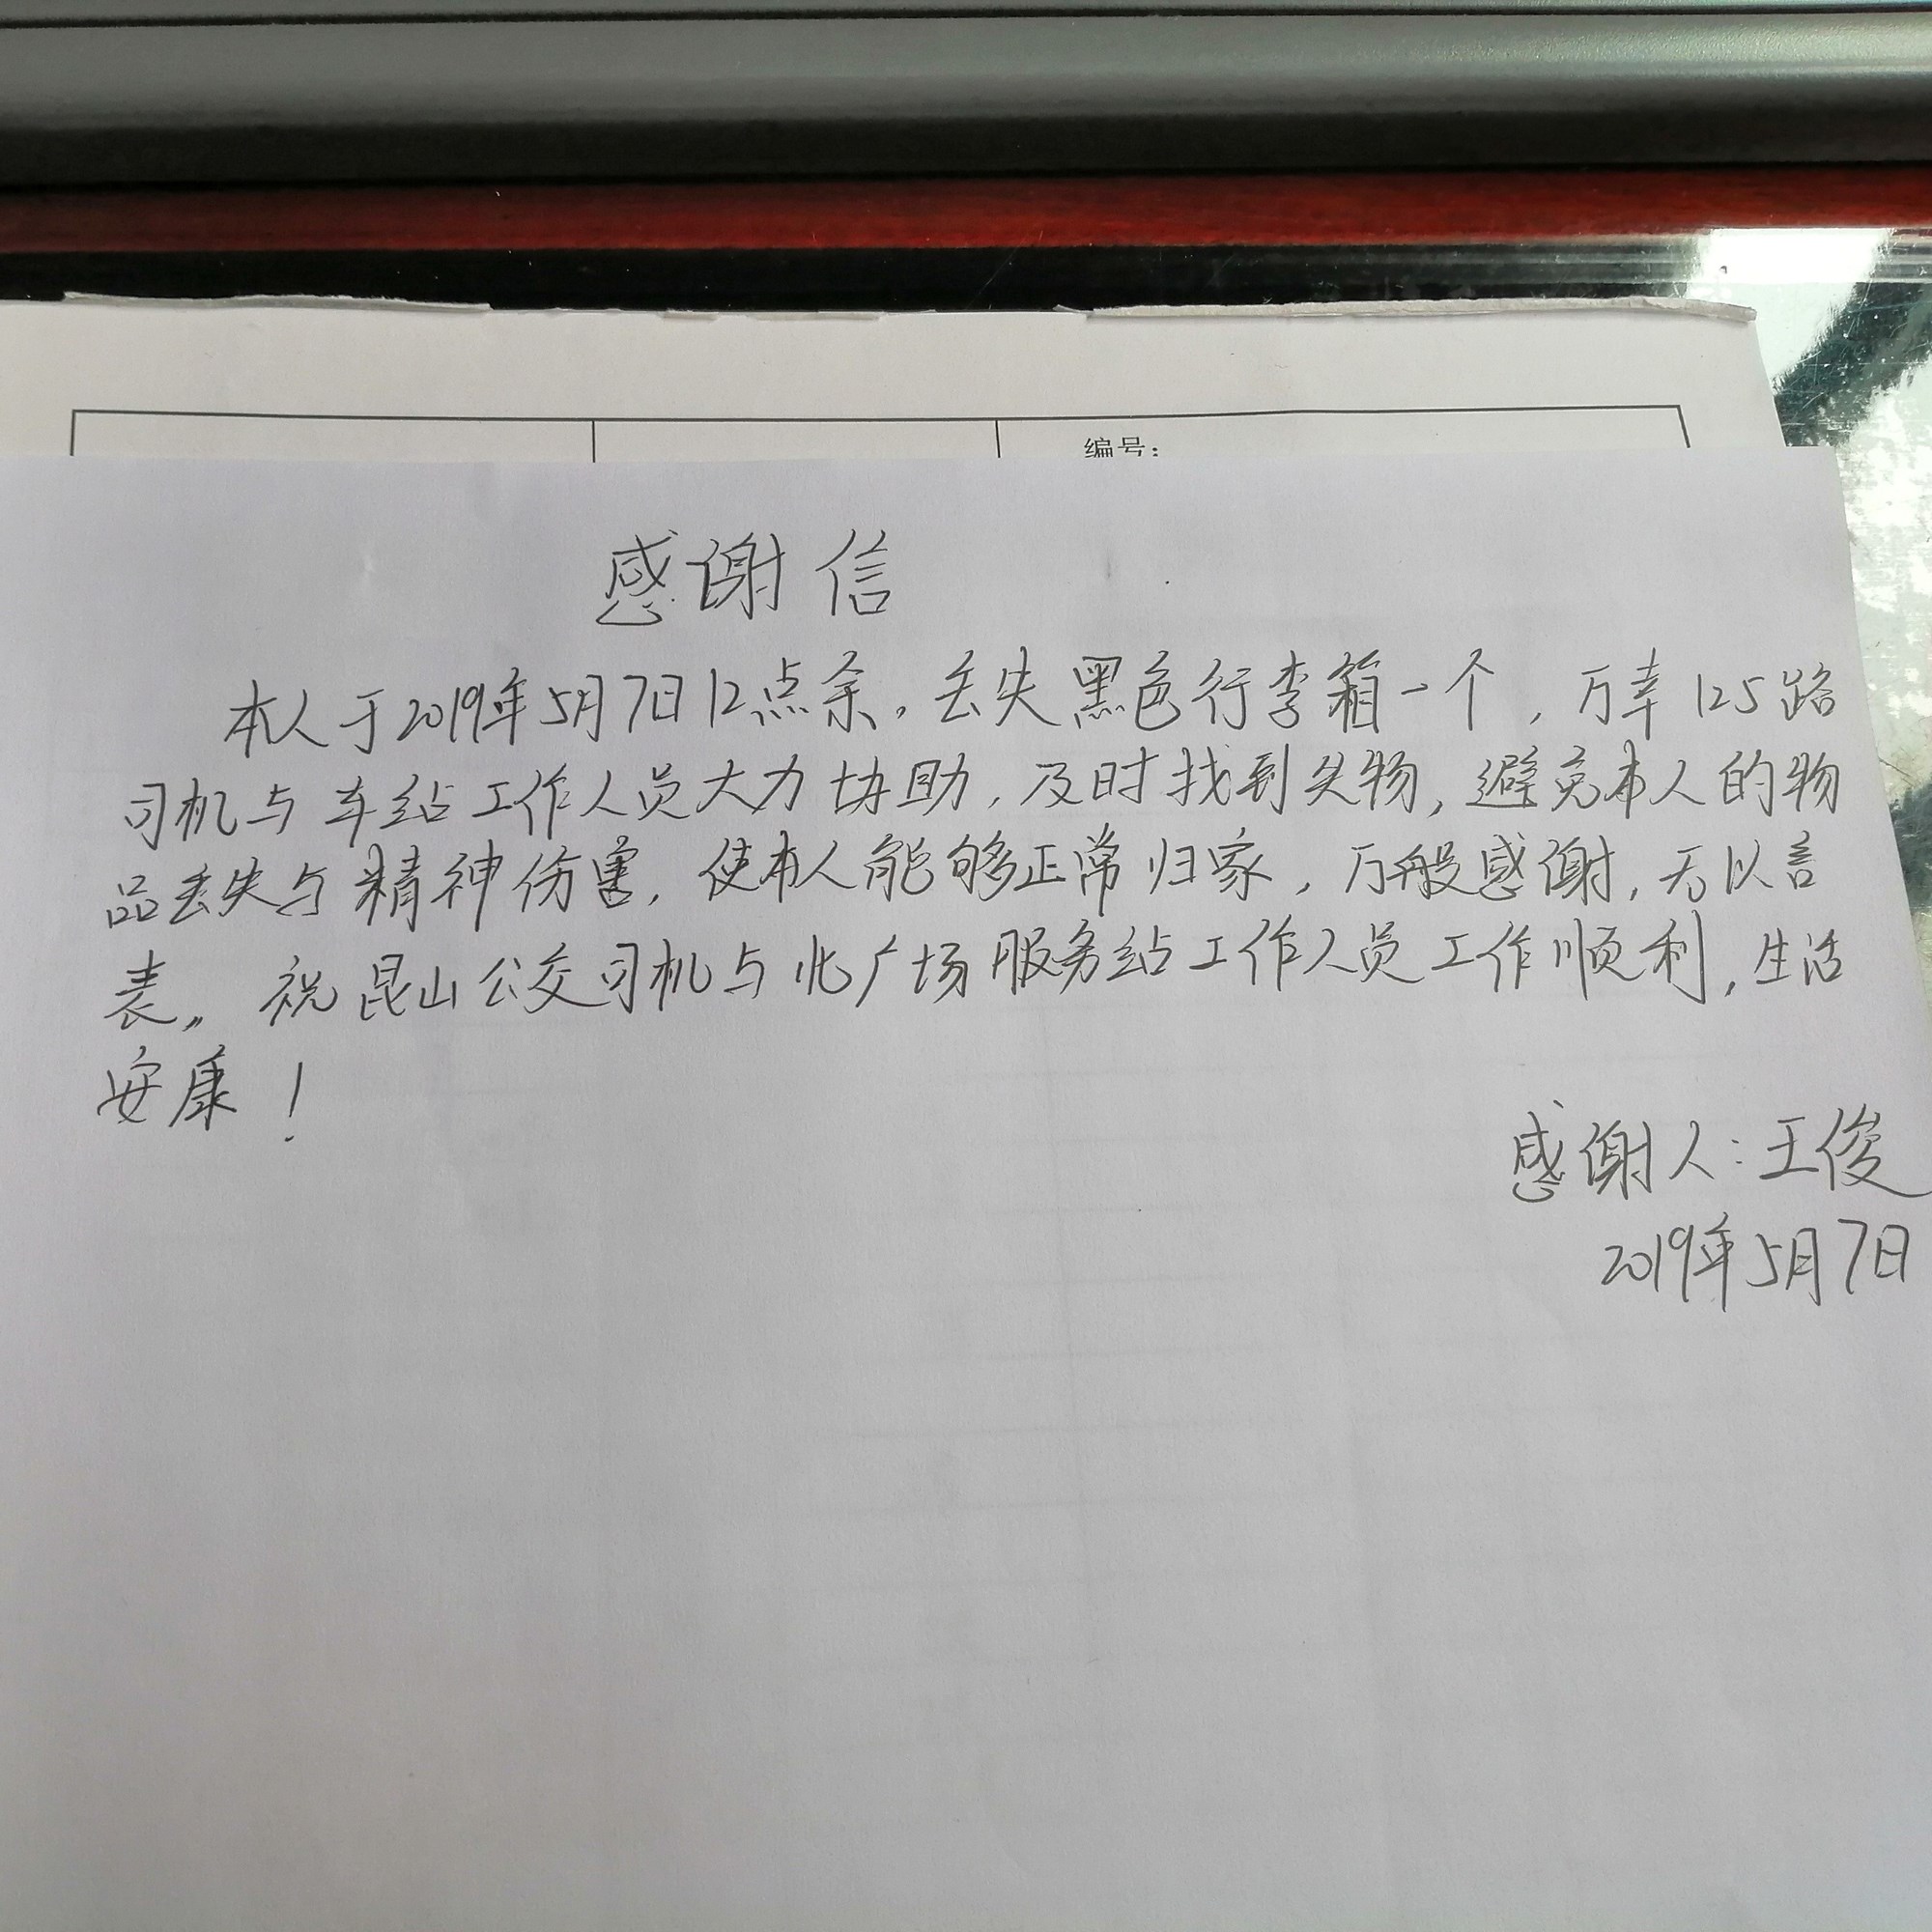 编号:
感谢信
本人于2019年5月7日12点余,丢失黑色行李箱一个,万幸125路
司机与车站工作人员大力协助,及时找到失物,避免本人的物
品丢失与精神伤害,使本人能够正常归家,万般感谢,无以言
表。祝昆山公交司机与北广场服务站工作人员工作顺利,生活
安康!
感谢人:王俊
2019年5月7日